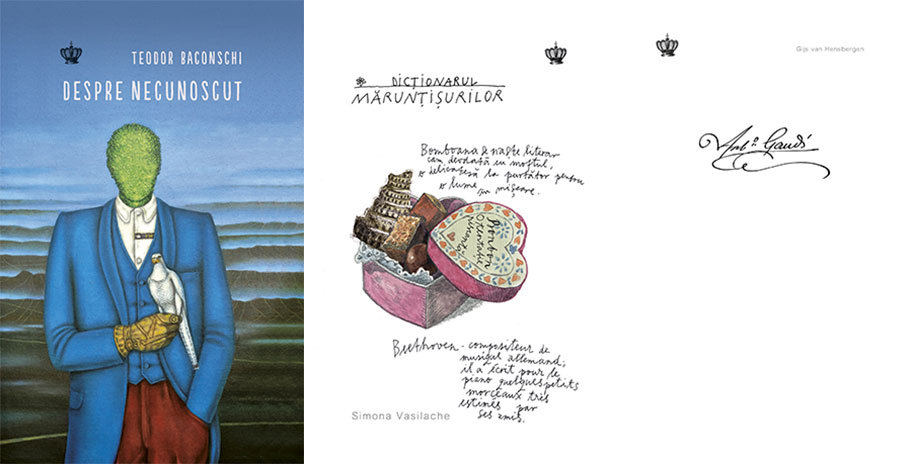 TEODOR BACONSCHI
DESPRE NECUNOSCUT
DICȚIONARUL
MĂRUNȚIȘURILOR
Bomboana se naște literar
cam deodată cu moftul,
o delicatesă la purtător pentru
o lume în mișcare.
Bonbon
Beethoven - compositeur de
musique allemand;
il a écrit pour le
piano quelques petits
morceaux très
estimés par
ses amis.
Simona Vasilache
Gijs van Hensbergen
Antº Gaudí